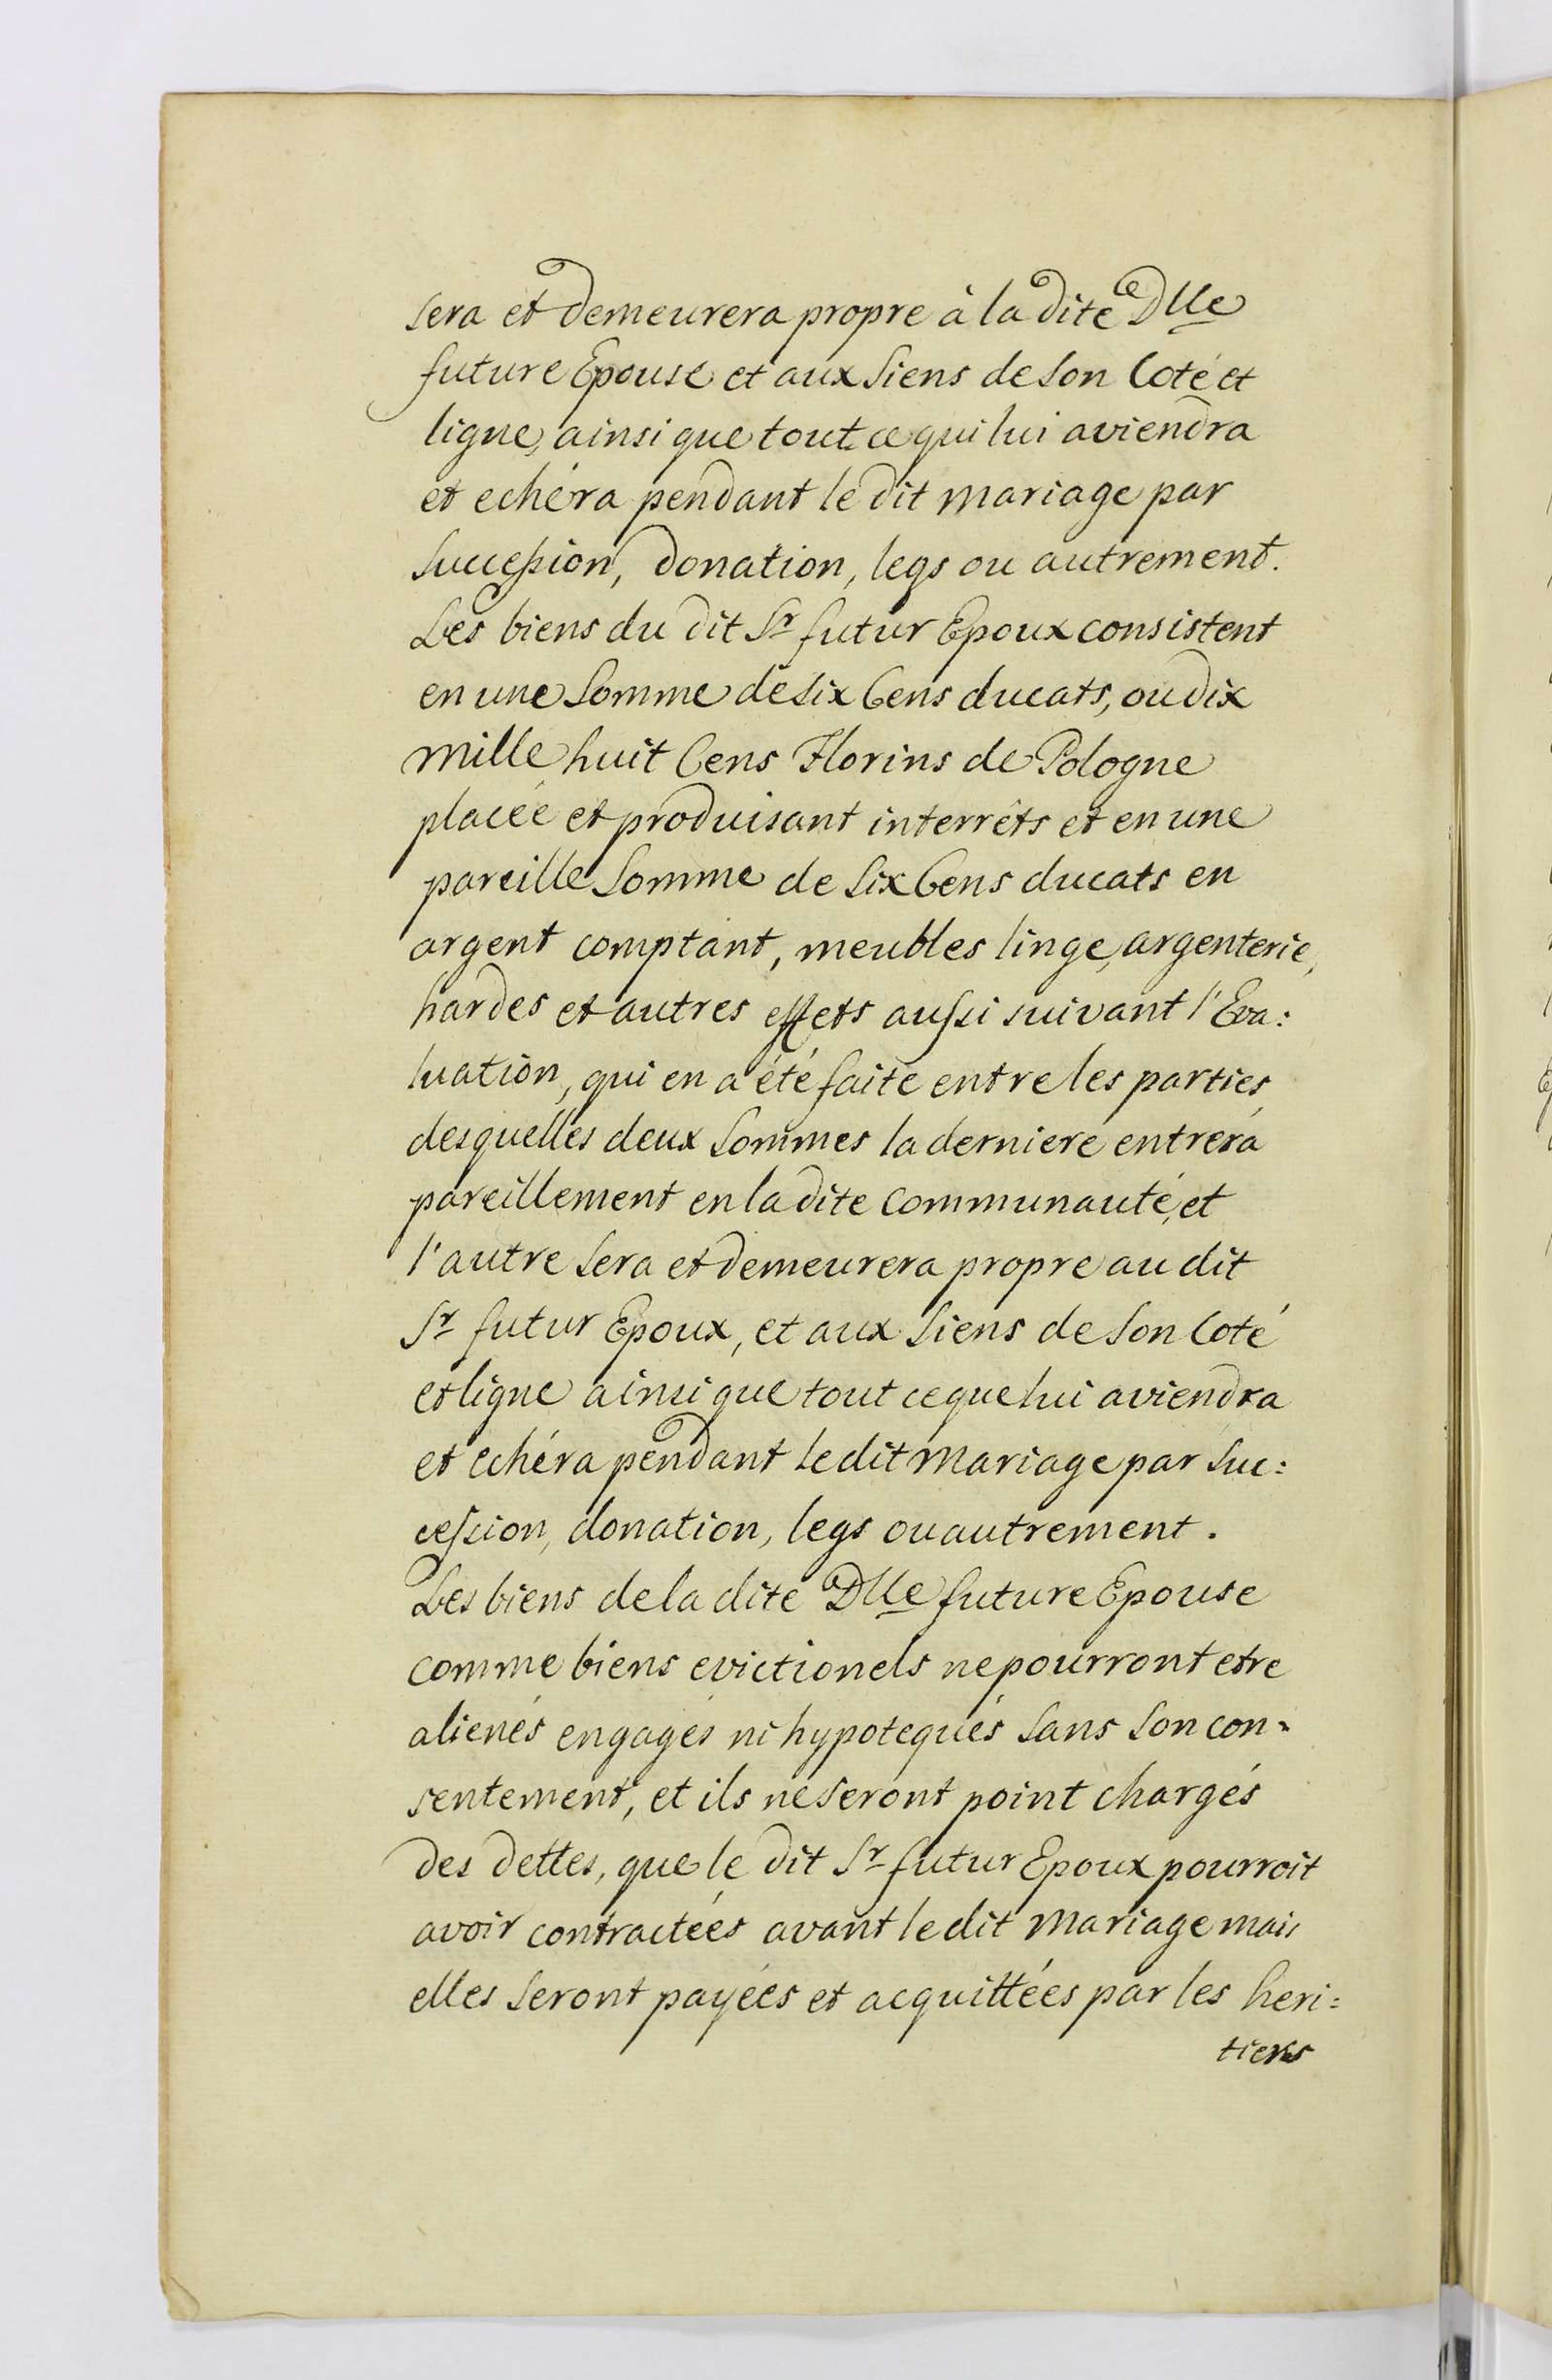 sera et demeurera propre à la dite Dlle
future Epouse et aux Siens de Son Coté et
ligne, ainsi que tout ce qui lui aviendra
et echéra pendant le dit mariage par
Succession, donation, legs ou autrement.
Les biens du dit Sr futur Epoux consistent
en une Somme de six Cens ducats, ou dix
mille huit Cens Florins de Pologne
placée et produisant interrêts et en une
pareille Somme de Six Cens ducats en
argent comptant, meubles linge, argenterie,
hardes et autres effets aussi suivant l'Eva:
luation, qui en a été faite entre les parties,
desquelles deux Sommes la derniere entrera
pareillement en la dite Communauté, et
l'autre Sera et demeurera propre au dit
Sr futur Epoux, et aux Siens de Son Coté
et ligne ainsi que tout ce que lui aviendra
et echéra pendant le dit Mariage par Suc:
cession, donation, legs ou autrement.
Les biens de la dite Dlle future Epouse
comme biens evictionels ne pourront etre
alienés engagés ni hypotequés Sans Son con=
sentement, et ils ne Seront point chargés
des dettes, que le dit Sr futur Epoux pourroit
avoir contractées avant le dit Mariage mais
elles Seront payées et acquittées par les heri=
tiers